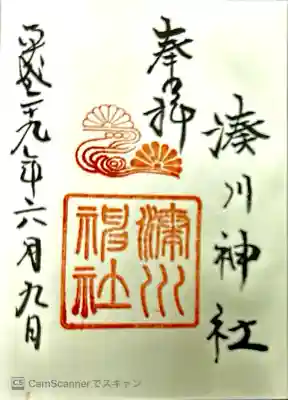 奉拝
湊川神社
湊川
神社
平成二十九年六月九日
CS CamScannerでスキャン